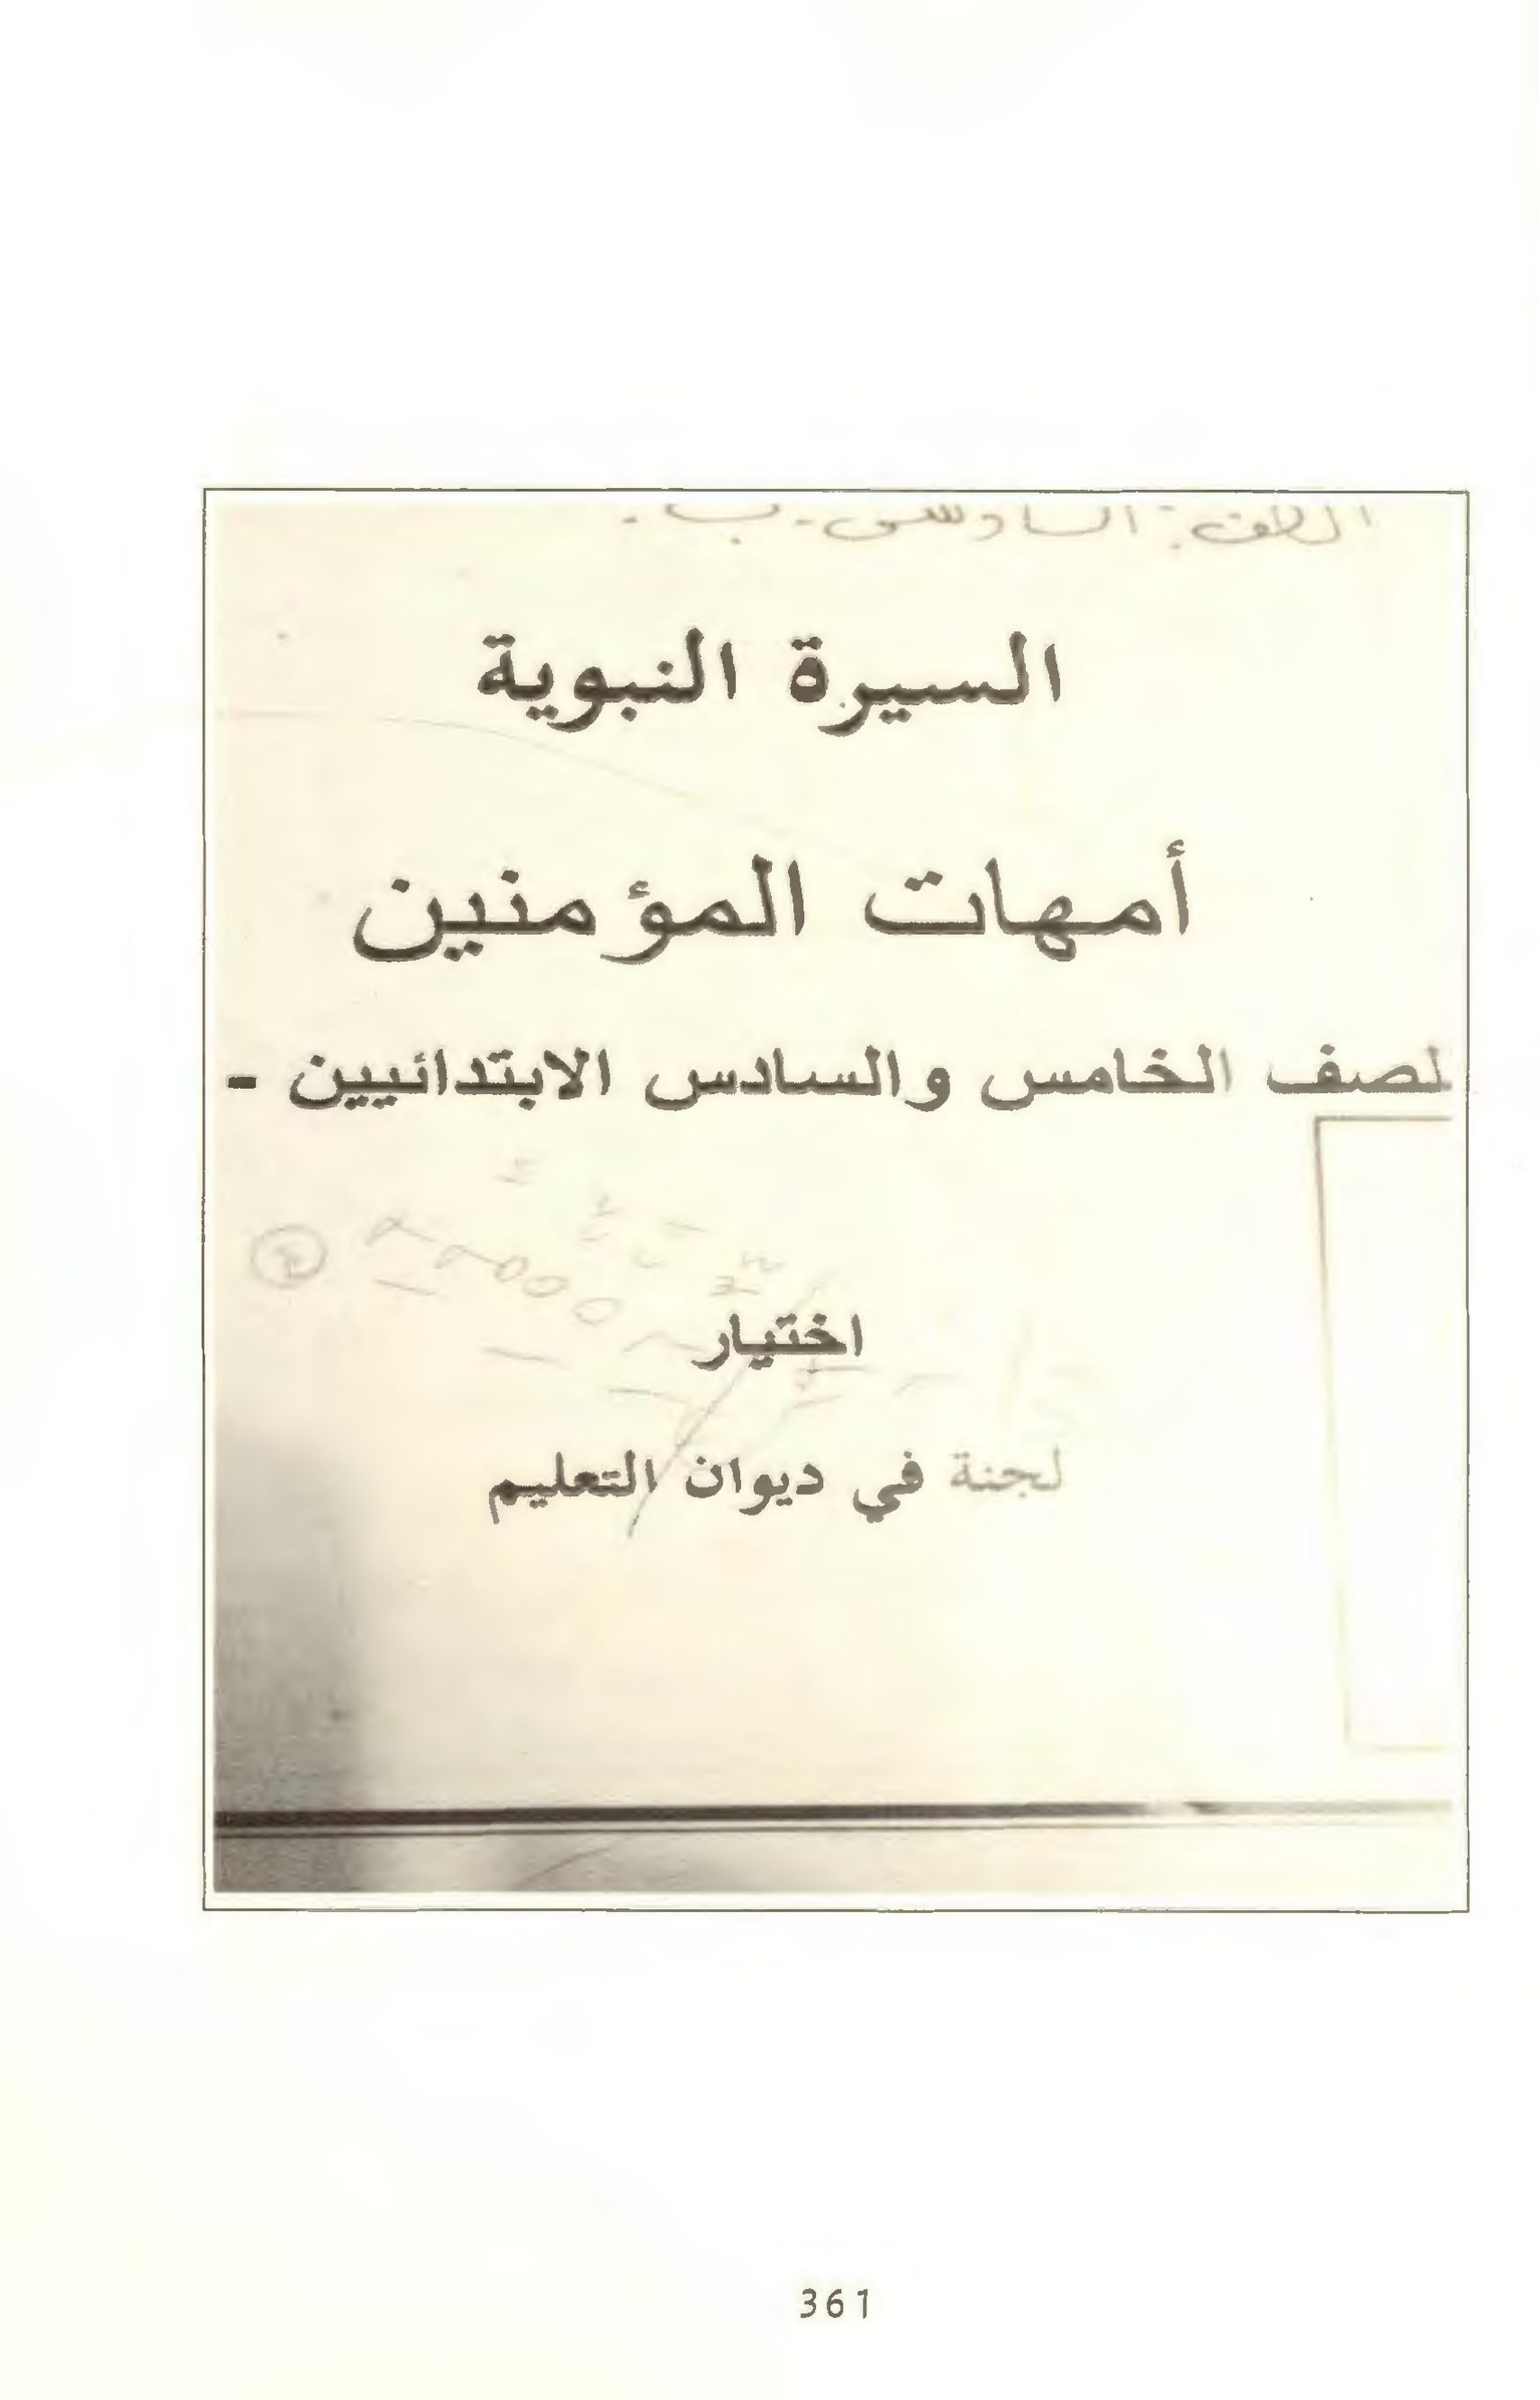 الصف: السادس - ب -
السيرة النبوية
أمهات المؤمنين
لصف الخامس والسادس الابتدائيين -
اختيار
لجنة في ديوان التعليم
361